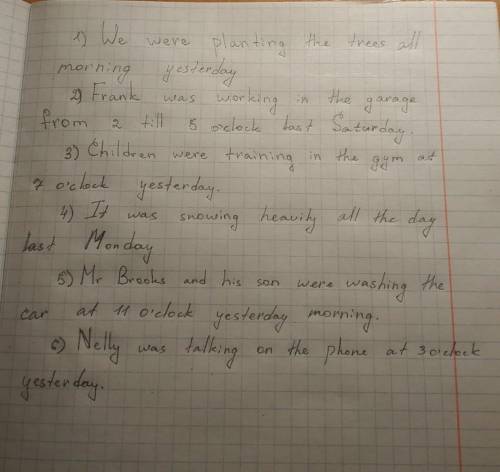 1) We were planting the trees all
morning yesterday
2) Frank was working in the garage
from 2 till 5 o'clock last Saturday.
3) Children were training in the gym at
7 o'clock yesterday.
4) It was snowing heavily all the day
last Monday
5) Mr Brooks and his son were washing the
car at 11 o'clock yesterday morning.
6) Nelly was talking on the phone at 3 o'clock
yesterday.